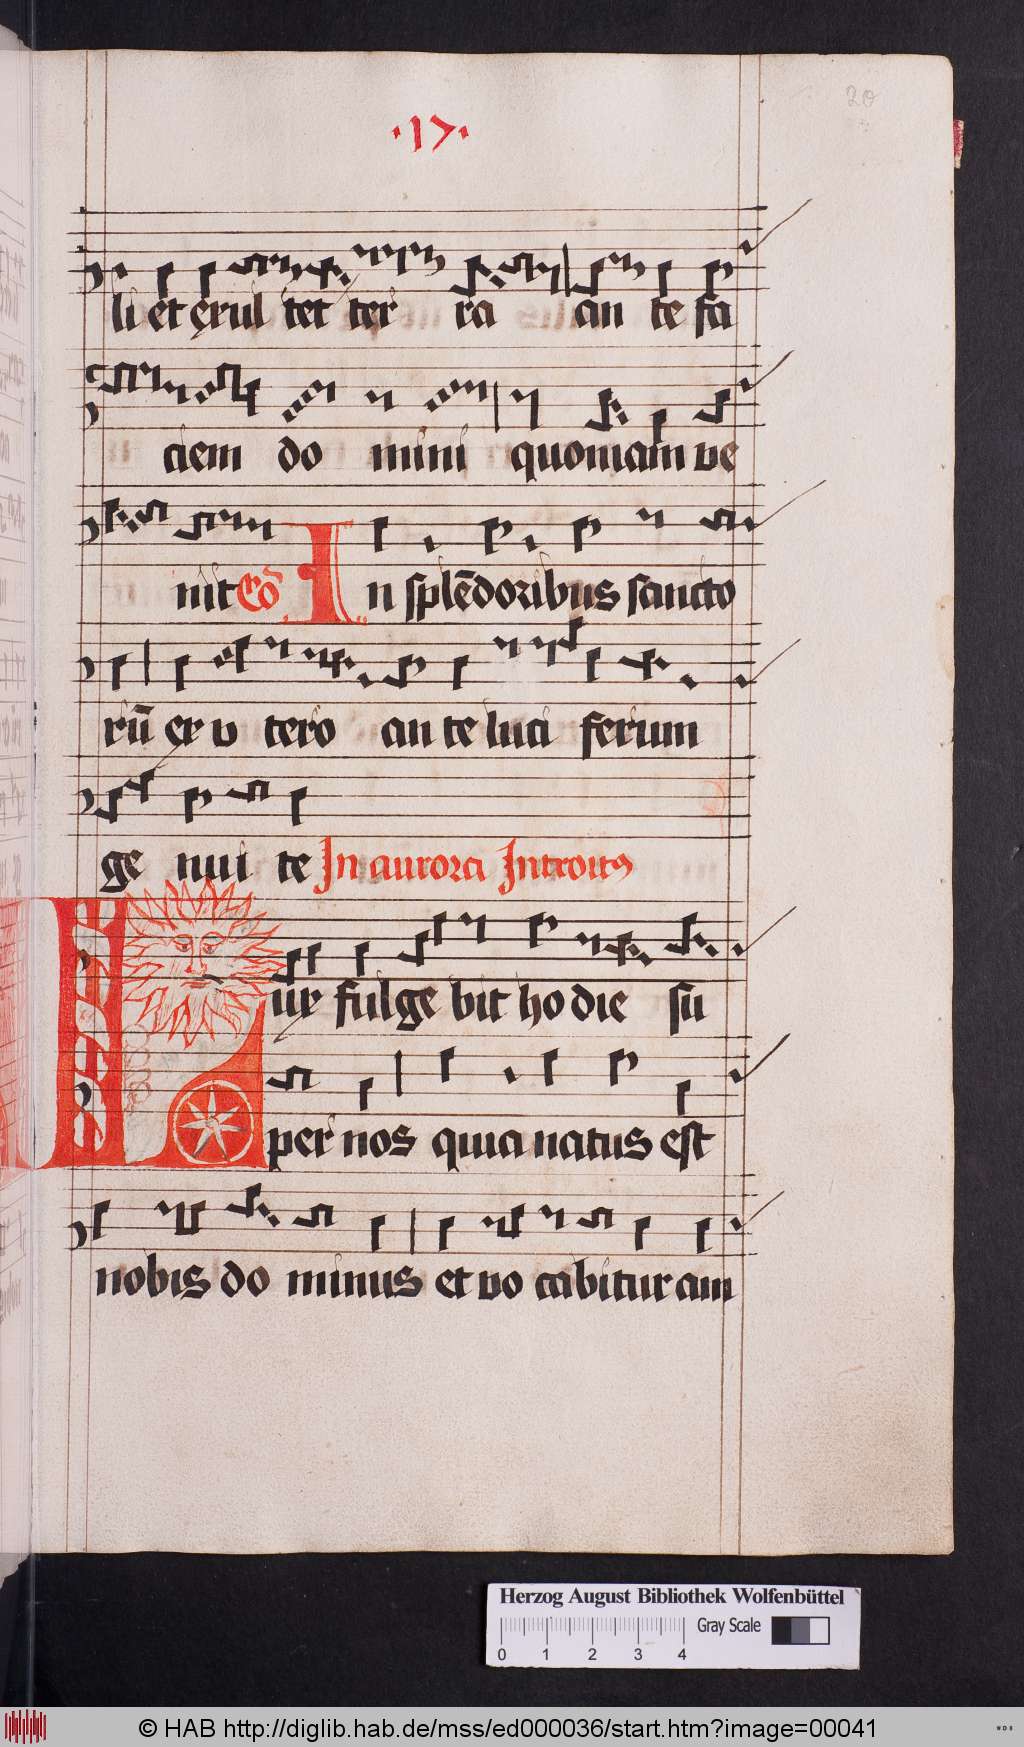 20
·17·
li et exul tet ter ra an te fa
ciem do mini quoniam ve
nit Cō In splēdoribus sancto
rū ex v tero an te luci ferum
ge nui te In aurora Introitus
Lux fulge bit ho die su
per nos quia natus est
nobis do minus et vo cabitur am
Herzog August Bibliothek Wolfenbüttel
Gray Scale
0 1 2 3 4
© HAB http://diglib.hab.de/mss/ed000036/start.htm?image=00041
WDB